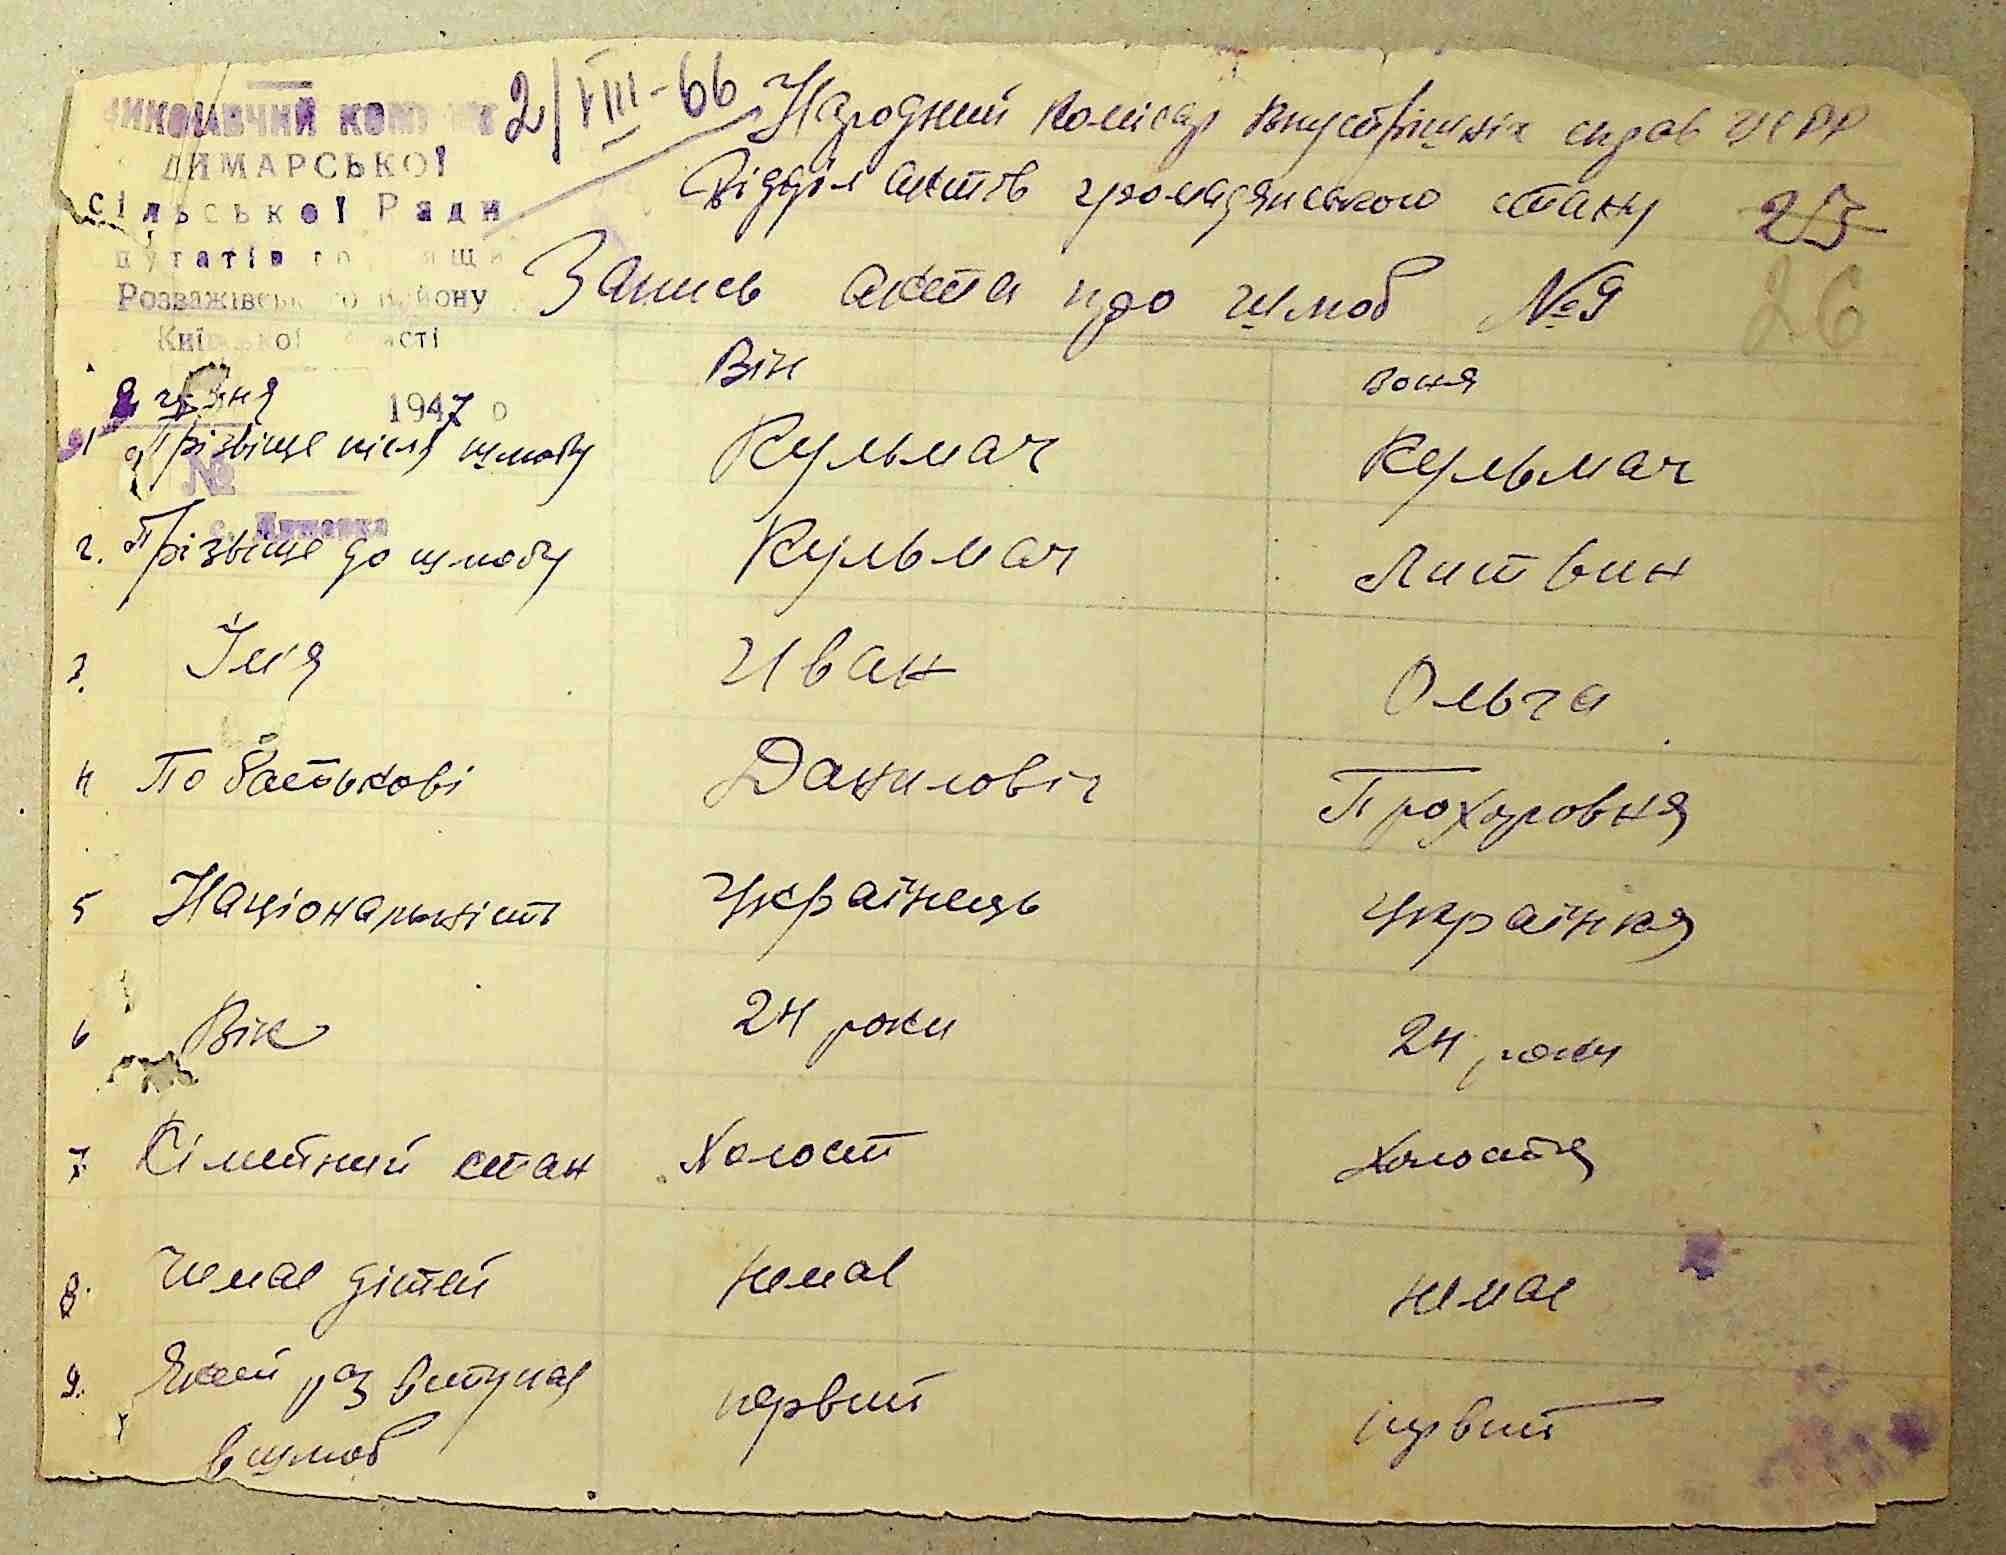 ВИКОНАВЧИЙ КОМІТЕТ
ДИМАРСЬКОЇ
Сільської Ради
Розважівського району
Київської області
1947 р
№
с. Димарка
2/VIII-66
Народний комісар внустрішніх справ УСРР
Відділ актів громадянського стану 25
Запись акта про шлюб №9 26
Він Воня
1 Прізвіще після шлюбу Кульмач Кульмач
2. Прізвіще до шлюбу Кульмач Литвин
3. Ім'я Иван Ольга
4 По батькові Даниловіч Прохоровня
5 Національніст Українець Українкя
6 Вік 24 роки 24 роки
7. Сімейний стан Холост Холостя
8. Чи має дітей немає немає
9. Який раз вступає первий первий
в шлюб